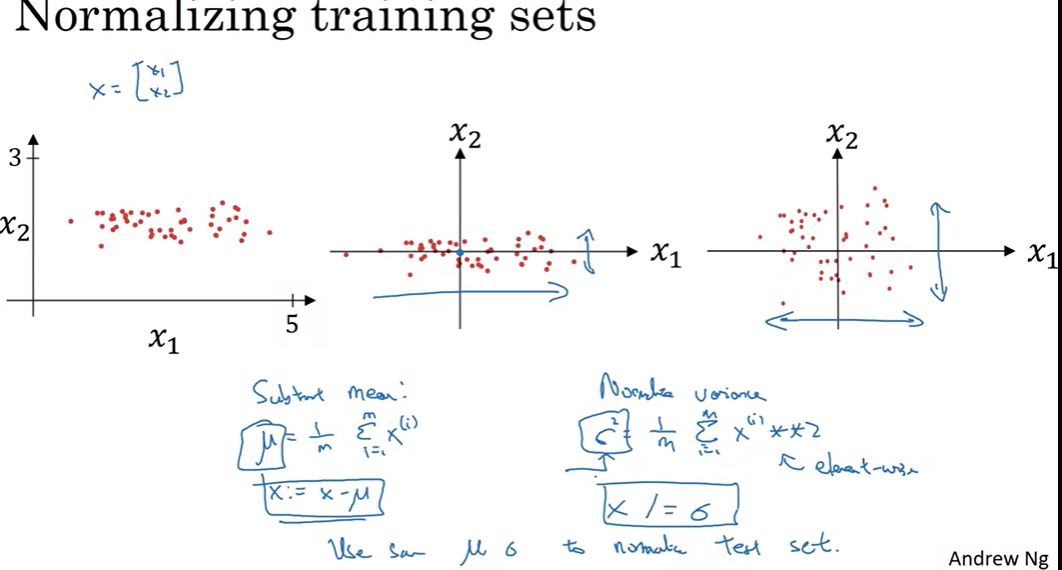 Normalizing training sets
x = [x₁ x₂]
3
x₂
x₁
5
x₂
x₁
x₂
x₁
Subtract mean:
μ = 1/m Σᵢ₌₁ᵐ x⁽ⁱ⁾
x := x - μ
Normalize variance
σ² = 1/m Σᵢ₌₁ᵐ x⁽ⁱ⁾ **2
↖ element-wise
x /= σ
Use same μ σ to normalize test set.
Andrew Ng